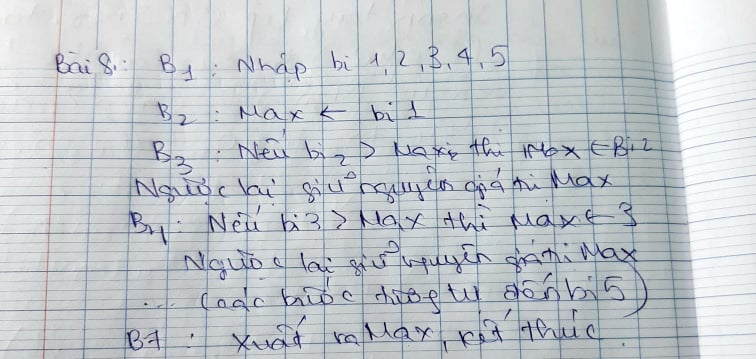 Bài 8: B1: Nhập bi 1, 2, 3, 4, 5
B2: Max ← bi 1
B3: Nếu bi 2 > Max thì Max ← Bi 2
Ngược lại giữ nguyên giá trị Max
B4: Nếu bi 3 > Max thì Max ← 3
Ngược lại giữ nguyên giá trị Max
... (các bước tương tự đến bi 5)
B7: Xuất ra Max, kết thúc.